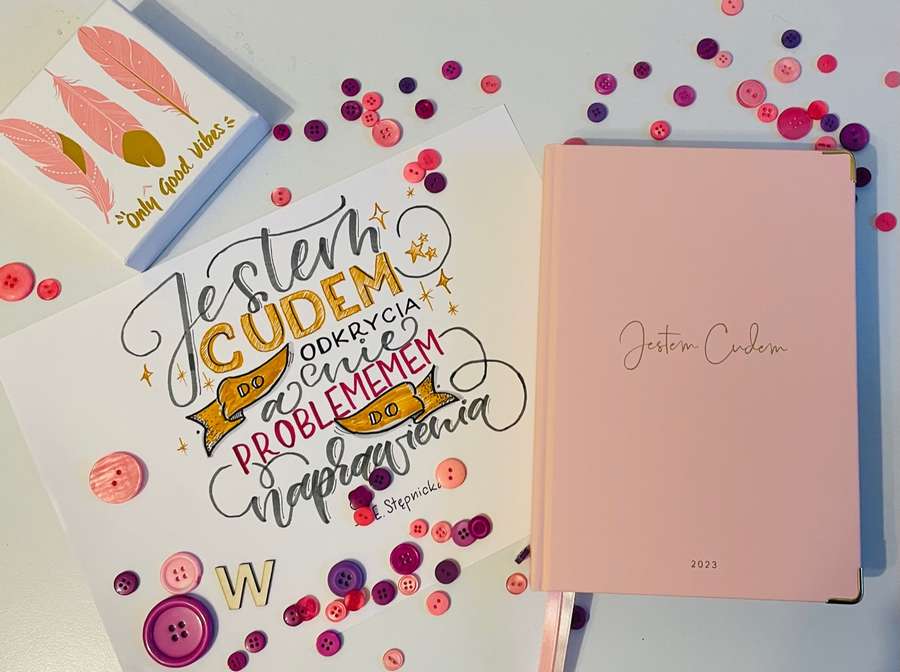 Only Good Vibes
Jestem
CUDEM
DO ODKRYCIA
a nie
PROBLEMEMEM
DO
naprawienia
E. Stępnicka
W
Jestem Cudem
2023